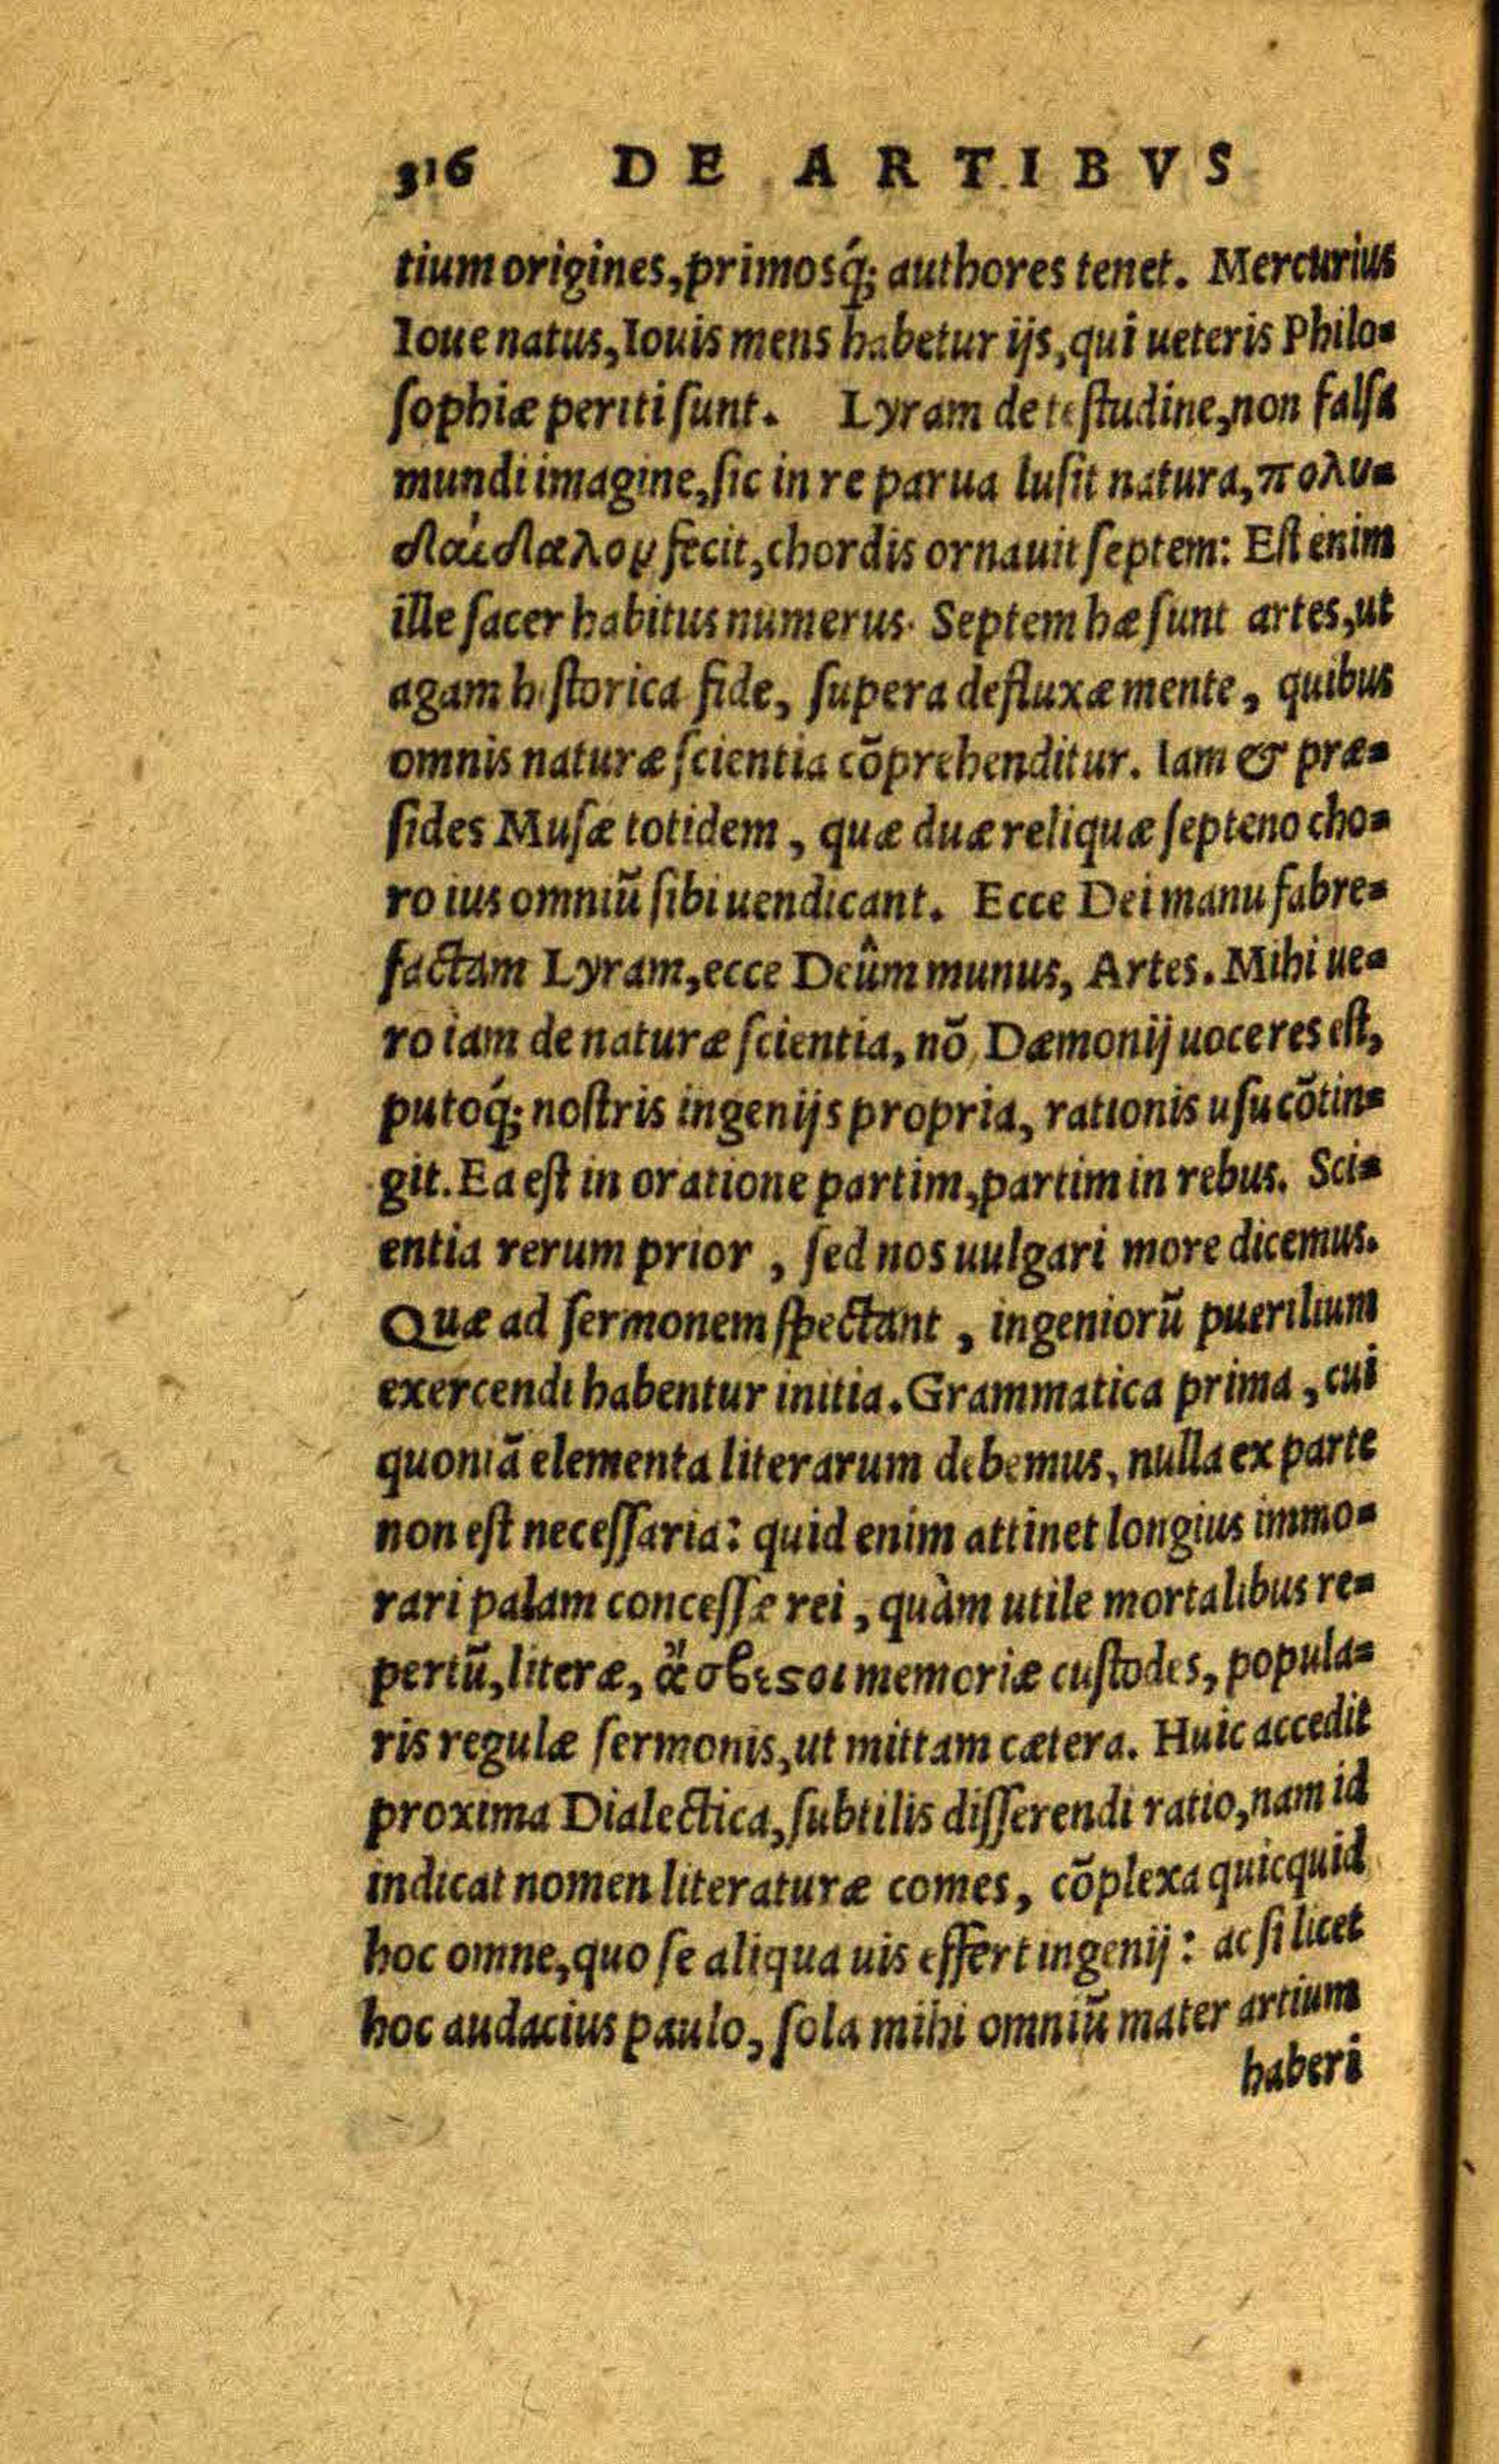 316 DE ARTIBVS
tium origines, primosq́; authores tenet. Mercurius
Ioue natus, Iouis mens habetur ijs, qui ueteris Philo-
sophiæ periti sunt. Lyram de testudine, non falsa
mundi imagine, sic in re parua lusit natura, πολυ-
δαίδαλον fecit, chordis ornauit septem: Est enim
ille sacer habitus numerus. Septem hæ sunt artes, ut
agam historica fide, supera defluxæ mente, quibus
omnis naturæ scientia cōprehenditur. Iam & præ-
sides Musæ totidem, quæ duæ reliquæ septeno cho-
ro ius omniū sibi uendicant. Ecce Dei manu fabre-
factam Lyram, ecce Deûm munus, Artes. Mihi ue-
ro iam de naturæ scientia, nō Dæmonij uoce res est,
putoq́; nostris ingenijs propria, rationis usu cōtin-
git. Ea est in oratione partim, partim in rebus. Sci-
entia rerum prior, sed nos uulgari more dicemus.
Quæ ad sermonem spectant, ingeniorū puerilium
exercendi habentur initia. Grammatica prima, cui
quoniā elementa literarum debemus, nulla ex parte
non est necessaria: quid enim attinet longius immo-
rari palam concessæ rei, quàm utile mortalibus re-
pertū, literæ, ἄσβεστοι memoriæ custodes, popula-
ris regulæ sermonis, ut mittam cætera. Huic accedit
proxima Dialectica, subtilis disserendi ratio, nam id
indicat nomen literaturæ comes, cōplexa quicquid
hoc omne, quo se aliqua uis effert ingenij: ac si licet
hoc audacius paulo, sola mihi omniū mater artium
haberi